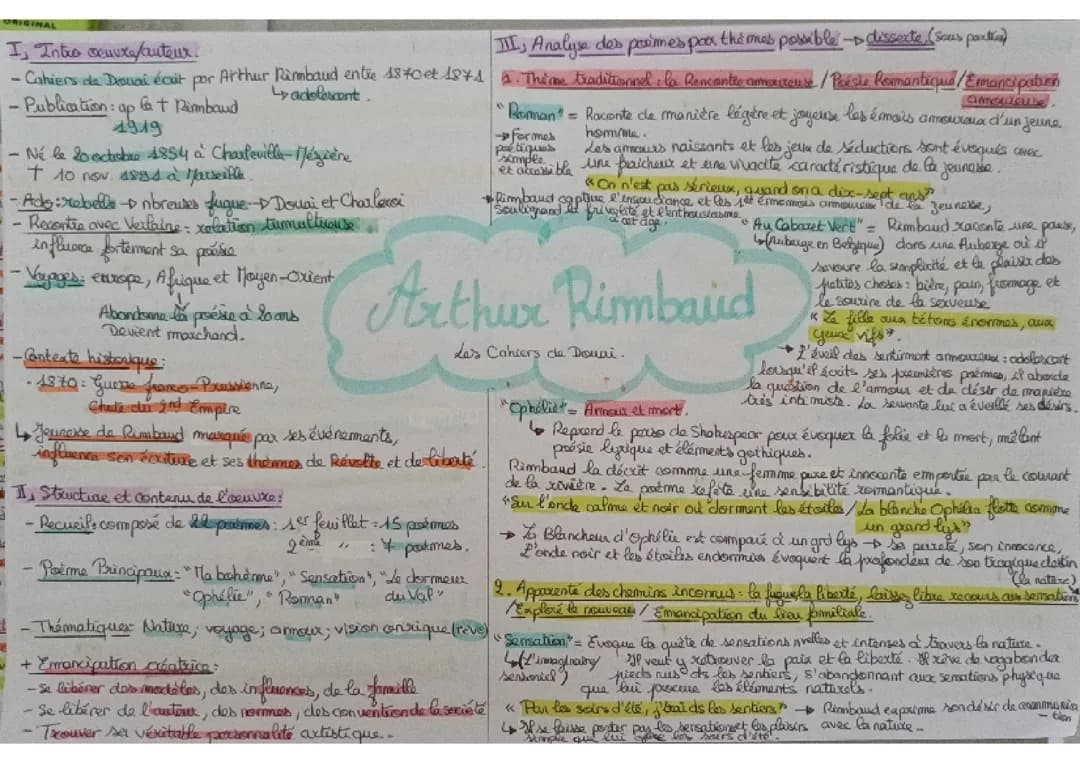 ORIGINAL
I, Intro oeuvre/auteur:
- Cahiers de Douai écrit par Arthur Rimbaud entre 1870 et 1871
↳ adolescent.
- Publication : ap la † Rimbaud
1919
- Né le 20 octobre 1854 à Charleville-Mézière
† 10 nov. 1891 à Marseille.
- Ado : rebelle → nbreuses fugue → Douai et Charleroi
- Recontre avec Verlaine : relation tumultueuse
influence fortement sa poésie
- Voyages : europe, Afrique et Moyen-Orient
Abandonne la poésie à 20 ans
Devient marchand.
- Contexte historique :
- 1870 : Guerre franco-Prussienne,
Chute du 2nd Empire
↳ Jeunesse de Rimbaud marqué par ses événements,
influence son écriture et ses thèmes de Révolte et de liberté.
II, Structure et contenu de l'oeuvre :
- Recueil : composé de 22 poèmes : 1er feuillet = 15 poèmes
2ème " : 7 poèmes.
- Poème Principaux = "Ma bohème", "Sensation", "Le dormeur
"Ophélie", "Roman" du Val"
- Thématiques : Nature ; voyage ; amour ; vision onirique (rêve)
+ Emancipation créatrice :
- Se libérer des modèles, des influences, de la famille
- Se libérer de l'auteur, des normes, des convention de la société
- Trouver sa véritable personnalité artistique.
Arthur Rimbaud
Les Cahiers de Douai.
III, Analyse des poèmes par thèmes possible → disserte. (sous partie)
1. Thème traditionnel : la Rencontre amoureuse / Poésie Romantique / Emancipation
amoureuse.
"Roman" = Raconte de manière légère et joyeuse les émois amoureux d'un jeune
homme.
→ Formes
poétiques
simple
et accessible
Les amours naissants et les jeux de séductions sont évoqués avec
une fraicheur et une vivacité caractéristique de la jeunesse.
"On n'est pas sérieux, quand on a dix-sept ans"
→ Rimbaud capture l'insouciance et les 1er amoureux de la jeunesse,
soulignand la frivolité et l'enthousiasme
à cet âge.
"Au Cabaret Vert" = Rimbaud raconte une pause,
↳ (Auberge en Belgique) dans une Auberge où il
savoure la simplicité et le plaisir des
petites choses : bière, pain, fromage et
le sourire de la serveuse
"La fille aux tétons énormes, aux
yeux vifs".
→ L'éveil des sentiment amoureux : adolescent
lorsqu'il écrit ses premières poèmes, il aborde
la question de l'amour et du désir de manière
très intimiste. La servante lui a éveillé ses désirs.
"Ophélie" = Amour et mort.
↳ Reprend le perso de Shakespear pour évoquer la folie et la mort, mêlant
poésie lyrique et éléments gothiques.
Rimbaud la décrit comme une femme pure et innocente emportée par le courant
de la rivière. Le poème reflète une sensibilité romantique.
"Sur l'onde calme et noir où dorment les étoiles / La blanche Ophélia flotte comme
un grand lys"
→ La Blancheur d'Ophélie est comparé à un grd lys → sa pureté, son innocence,
L'onde noir et les étoiles endormies évoquent la profondeur de son tragique destin
(la nature)
2. Apparenté des chemins inconnus : la fugue, la liberté, laisser libre recours aux sensation
/ Exploré le nouveau / Emancipation du lieu familiale.
"Sensation" = Evoque la quête de sensations nvelles et intenses à travers la nature.
↳ (L'imaginary
sensoriel)
Il veut y retrouver la paix et la liberté. Il rêve de vagabonder
pieds nus ds les sentiers, s'abandonnant aux sensations physique
que lui procure les éléments naturels.
"Par les soirs d'été, j'irai ds les sentiers" → Rimbaud exprime son désir de communica
-tion
avec la nature.
↳ Il se laisse porter par les sensation et les plaisirs
simple que lui offre les soirs d'été.